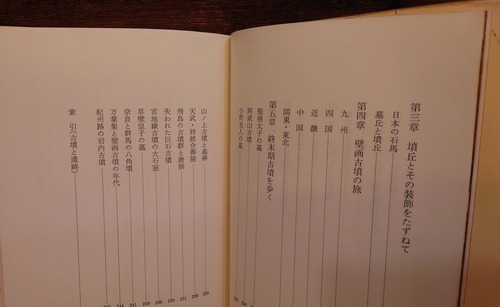 第三章 墳丘とその装飾をたずねて
日本の石馬
墓丘と墳丘
第四章 壁画古墳の旅
九州
四国
近畿
中国
関東・東北
第五章 終末期古墳を歩く
聖徳太子の墓
阿武山古墳
小野毛人の墓
山ノ上古墳と墓碑
天武・持統合葬陵
飛鳥の古墳群と唐制
失われた巨石古墳
宮地嶽古墳の大石室
草壁皇子の墓
奈良と群馬の八角墳
万葉集と壁画古墳の年代
紀州路の岩内古墳
索引(古墳と遺跡)